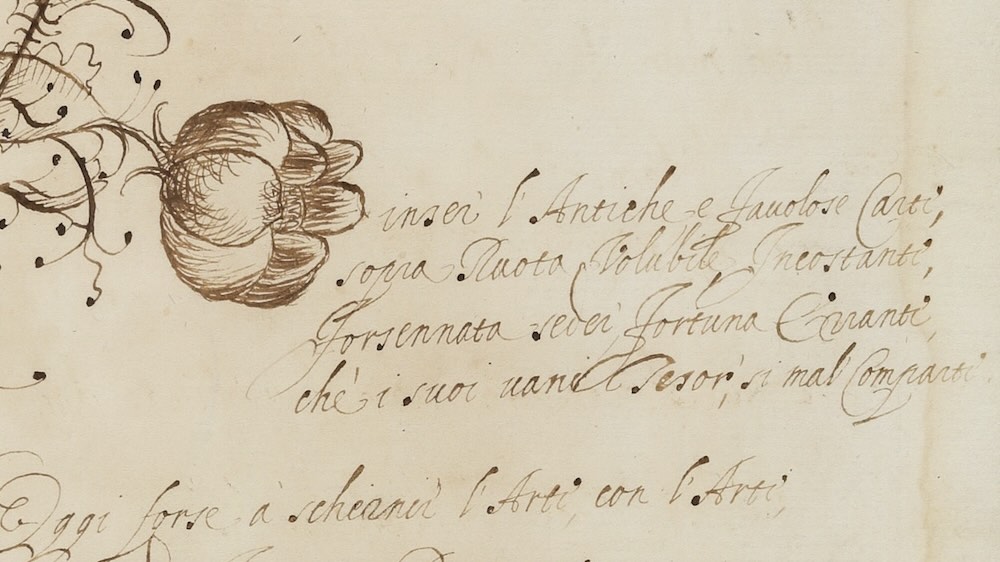 inser l'Antiche e Fauolose Carte,
sopra Ruota Volubile, Incostante,
Forsennata seder Fortuna Errante,
chè i suoi uani Tesor, si mal Comparte
Oggi forse à schernir l'Arte, con l'Arte,